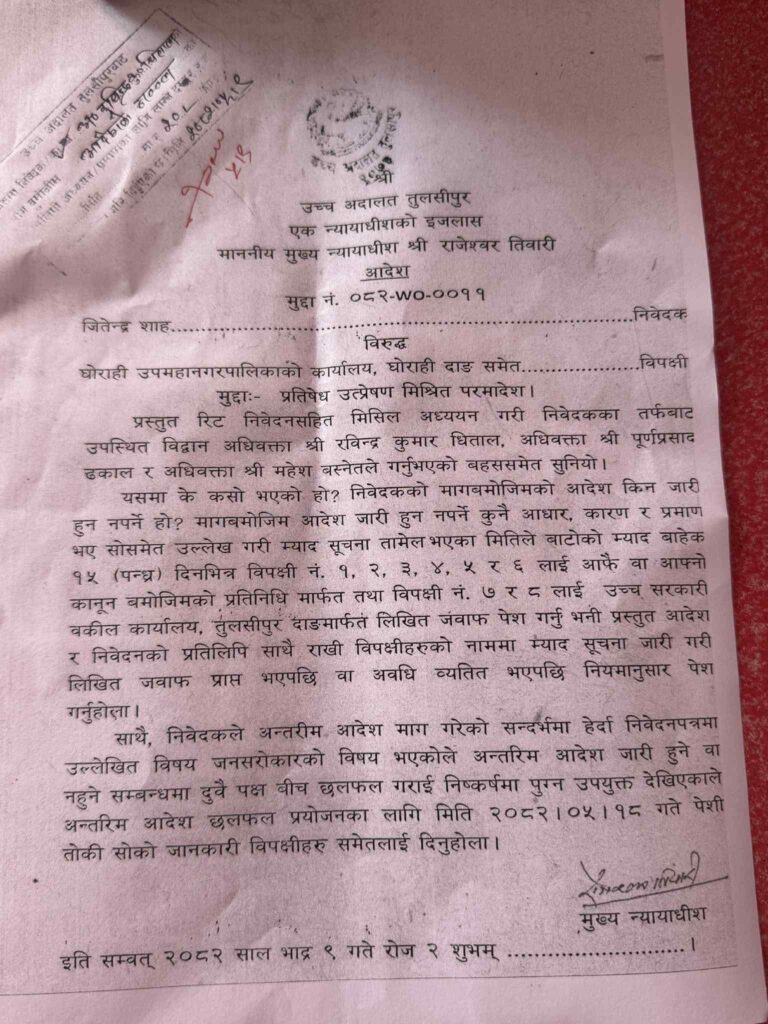 उच्च अदालत तुलसीपुरबाट
२०८२।०५।९
उच्च अदालत तुलसीपुर
श्री
उच्च अदालत तुलसीपुर
एक न्यायाधीशको इजलास
माननीय मुख्य न्यायाधीश श्री राजेश्वर तिवारी
आदेश
मुद्दा नं. ०८२-WO-००११
जितेन्द्र शाह..................................................................निवेदक
विरुद्ध
घोराही उपमहानगरपालिकाको कार्यालय, घोराही दाङ समेत....................विपक्षी
मुद्दाः- प्रतिषेध उत्प्रेषण मिश्रित परमादेश।
प्रस्तुत रिट निवेदनसहित मिसिल अध्ययन गरी निवेदकका तर्फबाट
उपस्थित विद्वान अधिवक्ता श्री रविन्द्र कुमार धिताल, अधिवक्ता श्री पूर्णप्रसाद
ढकाल र अधिवक्ता श्री महेश बस्नेतले गर्नुभएको बहससमेत सुनियो।
यसमा के कसो भएको हो? निवेदकको मागबमोजिमको आदेश किन जारी
हुन नपर्ने हो? मागबमोजिम आदेश जारी हुन नपर्ने कुनै आधार, कारण र प्रमाण
भए सोसमेत उल्लेख गरी म्याद सूचना तामेल भएका मितिले बाटोको म्याद बाहेक
१५ (पन्ध्र) दिनभित्र विपक्षी नं. १, २, ३, ४, ५ र ६ लाई आफै वा आफ्नो
कानून बमोजिमको प्रतिनिधि मार्फत तथा विपक्षी नं. ७ र ८ लाई उच्च सरकारी
वकील कार्यालय, तुलसीपुर दाङमार्फत लिखित जवाफ पेश गर्नु भनी प्रस्तुत आदेश
र निवेदनको प्रतिलिपि साथै राखी विपक्षीहरुको नाममा म्याद सूचना जारी गरी
लिखित जवाफ प्राप्त भएपछि वा अवधि व्यतित भएपछि नियमानुसार पेश
गर्नुहोला।
साथै, निवेदकले अन्तरीम आदेश माग गरेको सन्दर्भमा हेर्दा निवेदनपत्रमा
उल्लेखित विषय जनसरोकारको विषय भएकोले अन्तरिम आदेश जारी हुने वा
नहुने सम्बन्धमा दुवै पक्ष वीच छलफल गराई निष्कर्षमा पुग्न उपयुक्त देखिएकाले
अन्तरिम आदेश छलफल प्रयोजनका लागि मिति २०८२।०५।१८ गते पेशी
तोकी सोको जानकारी विपक्षीहरु समेतलाई दिनुहोला।
मुख्य न्यायाधीश
इति सम्वत् २०८२ साल भाद्र ९ गते रोज २ शुभम् ..........................।